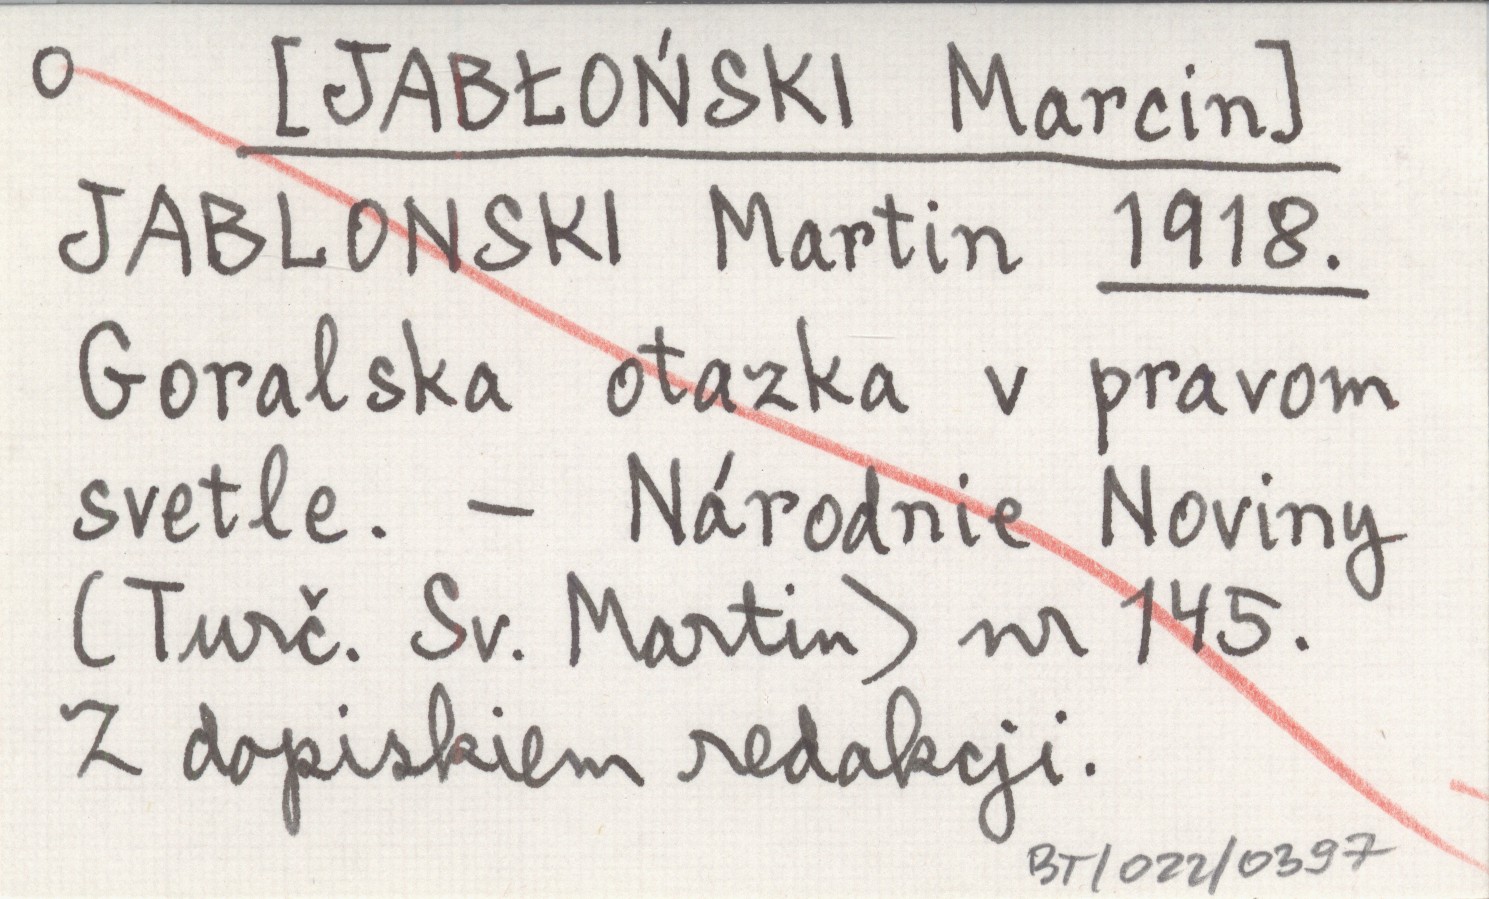 O [JABŁOŃSKI Marcin]
JABLONSKI Martin 1918.
Goralska otazka v pravom
svetle. — Národnie Noviny
(Turč. Sv. Martin) nr 145.
Z dopiskiem redakcji.
BT/022/0397